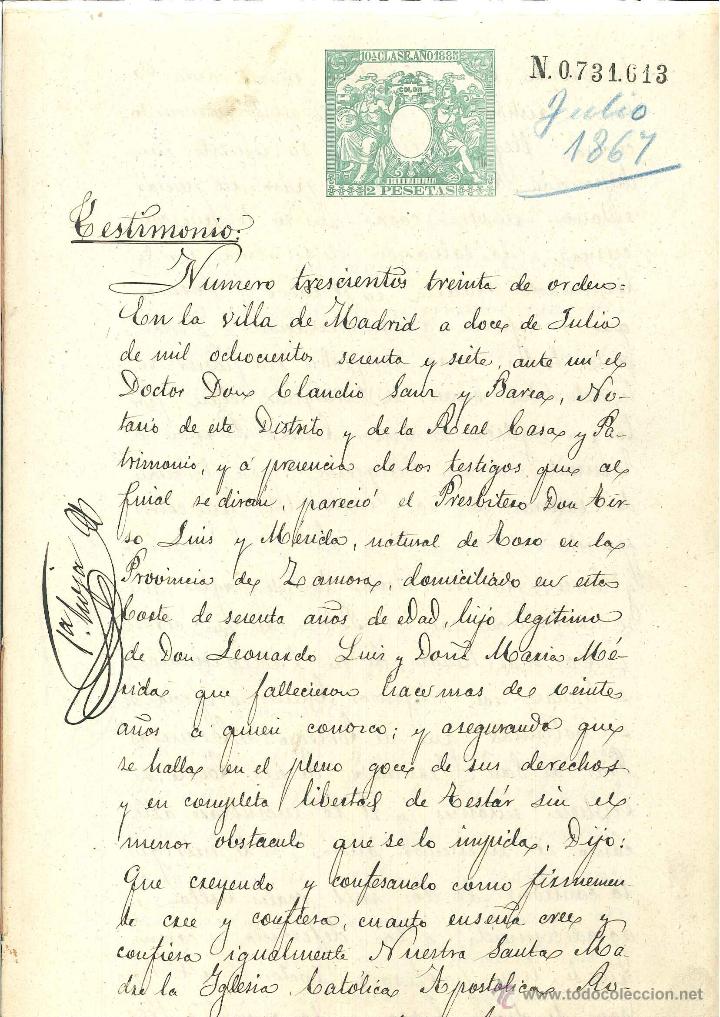 10ª CLASE. AÑO 1885
COLON
2 PESETAS
N.0.731.613
Julio
1867
Testimonio:
Numero trescientos treinta de orden=
En la villa de Madrid a doce de Julio
de mil ochocientos sesenta y siete, ante mi el
Doctor Don Claudio Sanz y Barea, No-
tario de este Distrito y de la Real Casa y Pa-
trimonio, y á presencia de los testigos que al
final se diran, pareció el Presbitero Don Tir-
so Luis y Mérida, natural de Toro en la
Provincia de Zamora, domiciliado en esta
Corte de sesenta años de edad, hijo legitimo
de Don Leonardo Luis y Doña Maria Mé-
rida que fallecieron hace mas de veinte
años a quien conozco; y asegurando que
se halla en el pleno goce de sus derechos
y en completa libertad de testár sin el
menor obstaculo que se lo impida, Dijo:
Que creyendo y confesando como firmemen-
te cree y confiesa, cuanto enseña cree y
confiesa igualmente Nuestra Santa Ma-
dre la Iglesia Católica Apostolica Ro-
1ª hoja
www.todocoleccion.net